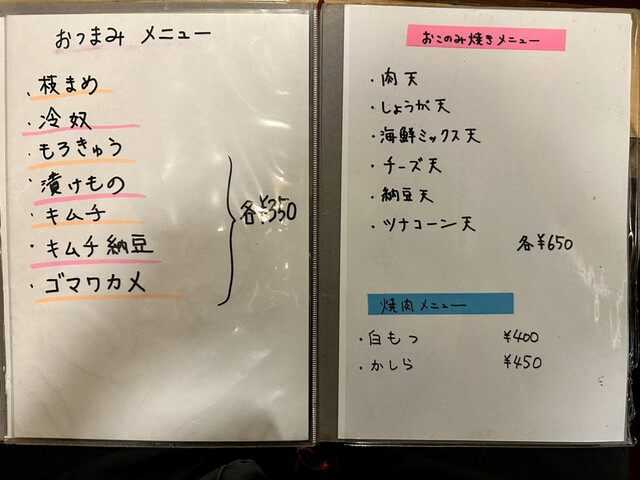 おつまみ メニュー
・枝まめ
・冷奴
・もろきゅう
・漬けもの
・キムチ
・キムチ納豆
・ゴマワカメ
各¥350
おこのみ焼きメニュー
・肉天
・しょうが天
・海鮮ミックス天
・チーズ天
・納豆天
・ツナコーン天
各¥650
焼肉メニュー
・白もつ ¥400
・かしら ¥450